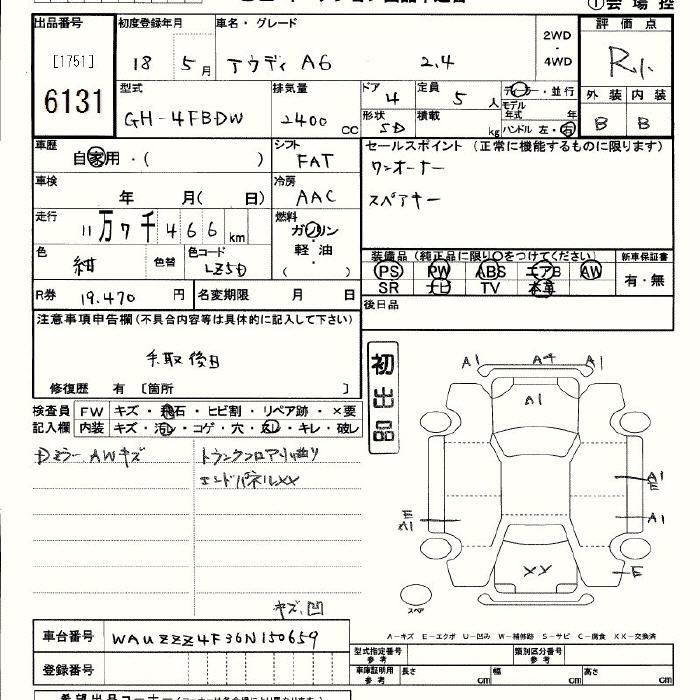 ① 会場控
出品番号 初度登録年月 車名・グレード 評価点
[1751] 18 5月 アウディ A6 2.4 2WD・4WD R小
6131
型式 排気量 ドア 定員 ディーラー・並行 外装 内装
GH-4FBDW 2400 cc 4 5人 モデル年式 年 B B
形状 5D 積載 kg ハンドル 左・右
車歴 自家用・( ) シフト FAT セールスポイント (正常に機能するものに限ります)
ワンオーナー
車検 年 月( 日) 冷房 AAC スペアキー
走行 11万7千466km 燃料 ガソリン・軽油 ( )
色 紺 色替 色コード LZ5D
装備品 (純正品に限り○をつけてください) 新車保証書
PS PW ABS エアB AW 有・無
SR ナビ TV 本革
R券 19.470 円 名変期限 月 日 後日品
注意事項申告欄 (不具合内容等は具体的に記入して下さい)
手取後日
修復歴 有 〔箇所 〕
初出品
検査員 FW キズ・飛石・ヒビ割・リペア跡・×要
記入欄 内装 キズ・汚レ・コゲ・穴・スレ・キレ・破レ
Dミラー、AWキズ トランクフロアー曲り
エンドパネルXX
キズ、凹
A1 A4 A1
A1
A1
E
E
A1
A1
XX E
スペア
A－キズ E－エクボ U－凹み W－補修跡 S－サビ C－腐食 XX－交換済
車台番号 WAUZZZ4F36N150659
登録番号
型式指定番号 参考 類別区分番号 参考
車庫証明用 参考 長さ cm 幅 cm 高さ cm